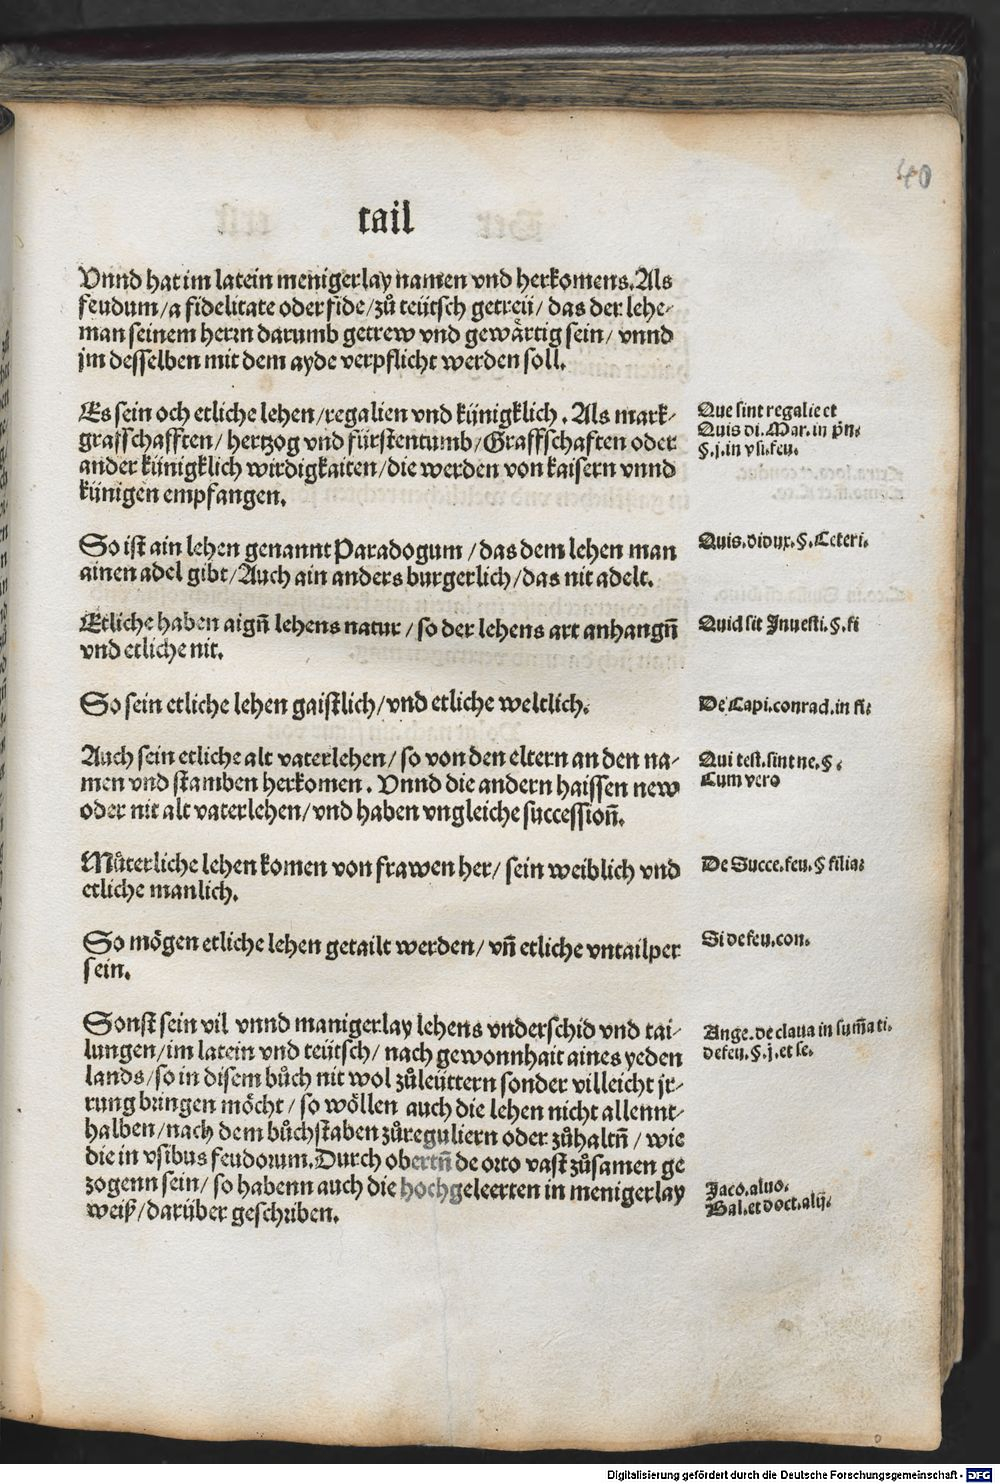 40
tail
Vnnd hat im latein menigerlay namen vnd herkomens. Als
feudum/a fidelitate oder fide/zů teütsch getreü/das der lehe-
man seinem herrn darumb getrew vnd gewårtig sein/vnnd
jm desselben mit dem ayde verpflicht werden soll.
Es sein och etliche lehen/regalien vnd künigklich. Als mark-
graffschafften/hertzog vnd fürstentumb/Graffschaften oder
ander künigklich wirdigkaiten/die werden von kaisern vnnd
künigen empfangen.
Que sint regalie et
Quis di. Mar. in pn̄.
§.j.in vsi.feu.
So ist ain lehen genannt Paradogum/das dem lehen man
ainen adel gibt/Auch ain anders burgerlich/das nit adelt.
Quis.di dux.§.Ceteri.
Etliche haben aign̄ lehens natur/so der lehens art anhangn̄
vnd etliche nit.
Quid sit Inuesti.§.si
So sein etliche lehen gaistlich/vnd etliche weltlich.
De Capi.conrad.in fi.
Auch sein etliche alt vaterlehen/so von den eltern an den na-
men vnd stamben herkomen. Vnnd die andern haissen new
oder nit alt vaterlehen/vnd haben vngleiche successionn̄.
Qui test.sint ne.§.
Cum vero
Můterliche lehen komen von frawen her/sein weiblich vnd
etliche manlich.
De Succe.feu.§ filia.
So mögen etliche lehen getailt werden/vn̄ etliche vntailper
sein.
Si de feu.con.
Sonst sein vil vnnd manigerlay lehens vnderschid vnd tai-
lungen/im latein vnd teütsch/nach gewonnhait aines yeden
lands/so in disem bůch nit wol zůleüttern sonder villeicht jr-
rung bringen möcht/so wöllen auch die lehen nicht allennt-
halben/nach dem bůchstaben zůreguliern oder zůhaltn̄/wie
die in vsibus feudorum. Durch obertn̄ de orto vast zůsamen ge
zogenn sein/so habenn auch die hochgeleerten in menigerlay
weiß/darüber geschriben.
Ange.de claua in sum̄a ti.
de feu.§.j.et se.
Jaco.aluo.
Bal.et doct.alij.
Digitalisierung gefördert durch die Deutsche Forschungsgemeinschaft - DFG